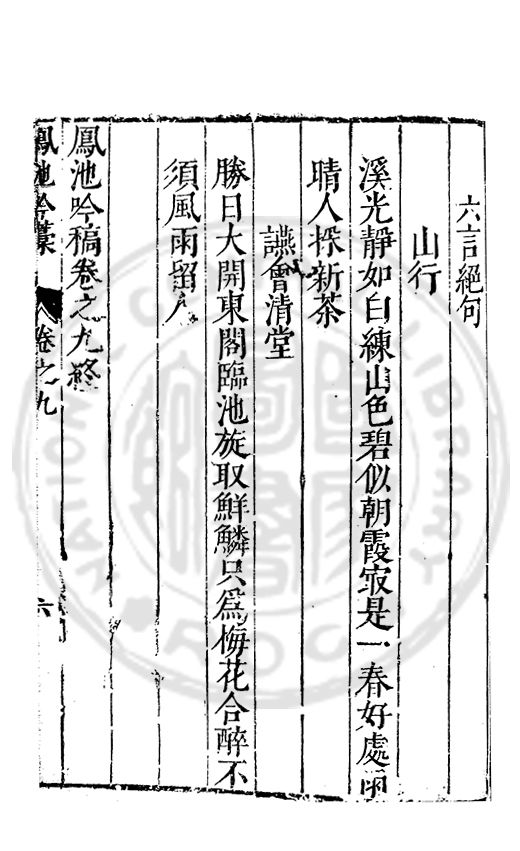 六言絕句
山行
溪光靜如白練山色碧似朝霞㝡是一春好處雨
晴人採新茶
讌會清堂
勝日大開東閣臨池旋取鮮鱗只爲梅花合醉不
須風雨留人
鳳池吟稿卷之九終
鳳池吟藁 卷之九 六